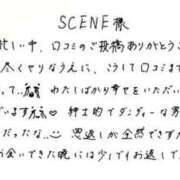 SCENE様
忙しい中、口コミのご投稿ありがとうご
くやりなうえに、こうして口コミま
て、、わたしばかり幸せをいただい
います 紳士的でダンディーな男
だったな、、 恩返しが全然できずた
お会いできた暁には少しでもお返しでき